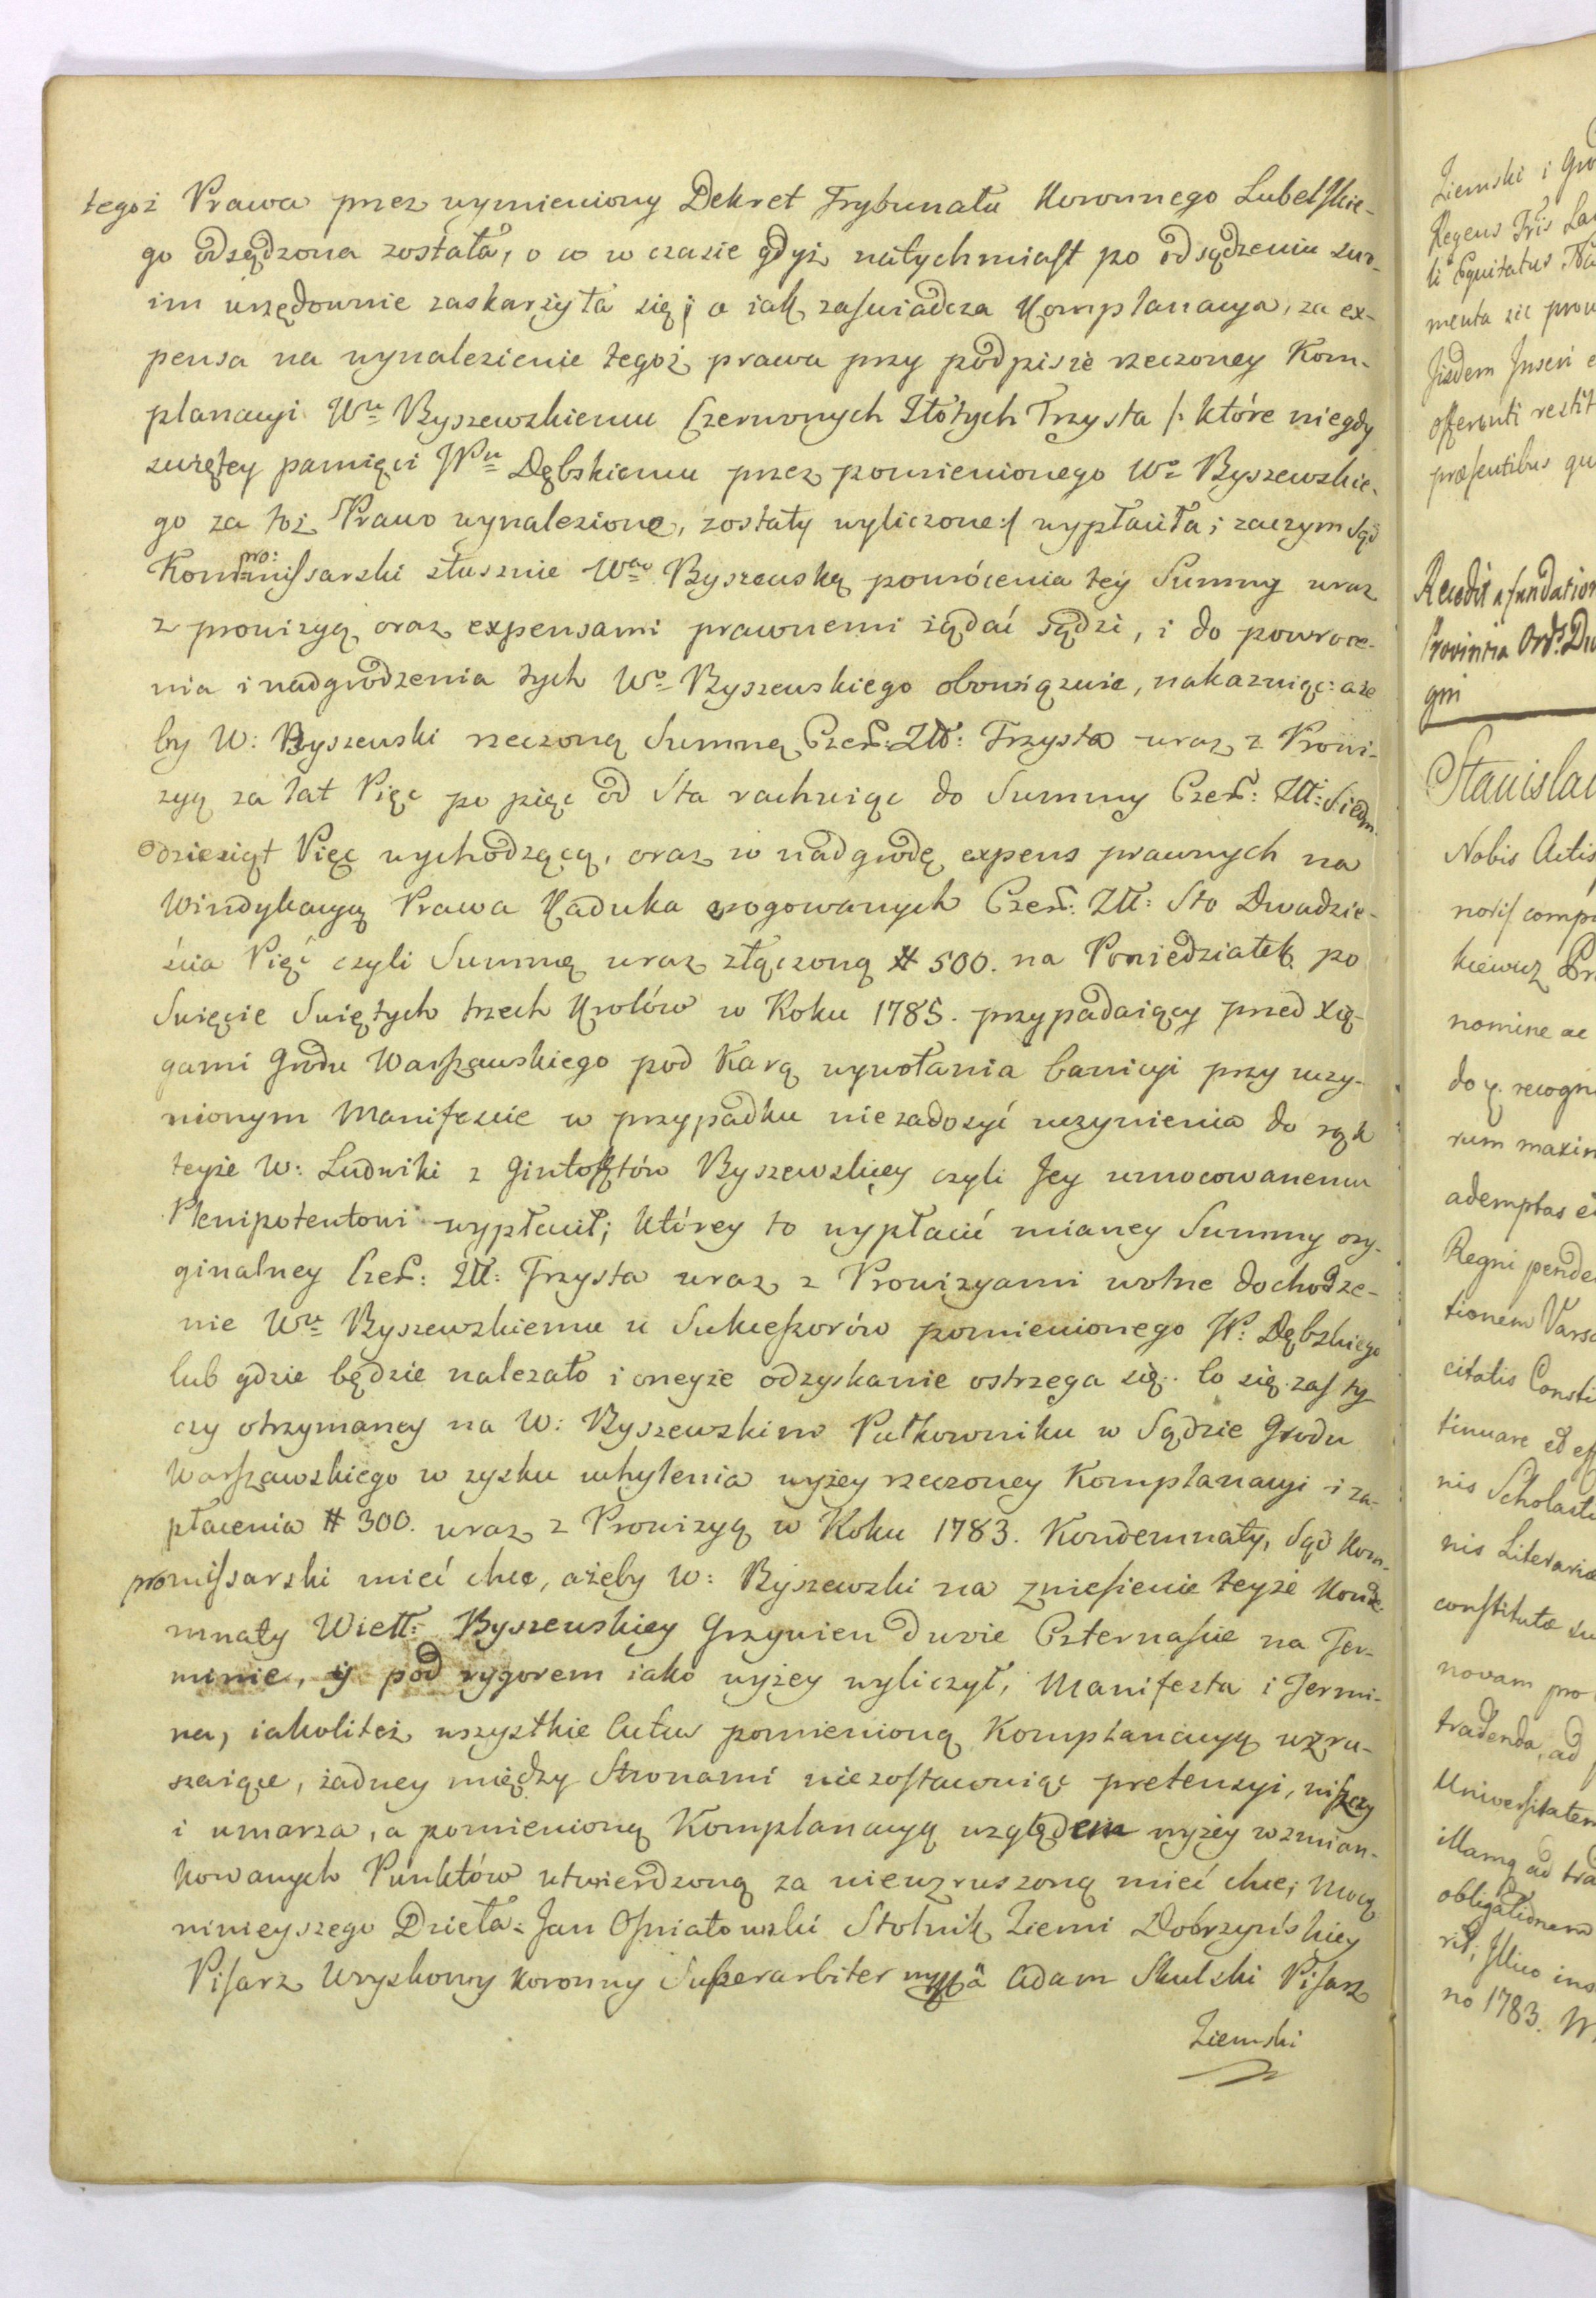 tegoż Prawa przez wymieniony Dekret Trybunału Koronnego Lubelskie-
go odsądzona została, o co w czasie gdyż natychmiast po odsądzeniu swo-
im urzędownie zaskarżyła się; a iak zaświadcza Komplanacya, za ex-
pensa na wynalezienie tegoż prawa przy podpisie rzeczoney Kom-
planacyi Wu Byszewskiemu Czerwonych Złotych Trzysta /: które niegdy
świętey pamięci JPu Dębskiemu przez pomienionego Wo Byszewskie-
go za toż Prawo wynalezione, zostały wyliczone :/ wypłaciła; zaczym Sąd
Kompromissarski słusznie Wą Byszewską powrócenia tey Summy wraz
z prowizyą oraz expensami prawnemi żądać sądzi, i do powroce-
nia i nadgrodzenia tych Wo Byszewskiego obowiązuie, nakazuiąc: aże
by W: Byszewski rzeczoną Summę Czer: Złł: Trzysta wraz z Prowi-
zyą za lat Pięc po pięc od Sta rachuiąc do Summy Czer: Złł: Siedm
dziesiąt Pięc wychodzącą, oraz w nadgrodę expens prawnych na
Windykacyą Prawa Kaduka erogowanych Czer: Złł: Sto Dwadzie-
ścia Pięć czyli Summę wraz złączoną # 500. na Poniedziałek po
Swięcie Swiętych trzech Krolów w Roku 1785. przypadaiący przed Xię-
gami Grodu Warszawskiego pod Karą wywołania banicyi przy uczy-
nionym Manifescie w przypadku niezadosyć uczynienia do rąk
teyże W: Ludwiki z Gintofftów Byszewskiey czyli Jey umocowanemu
Plenipotentowi wypłacił; którey to wypłacić mianey Summy ory-
ginalney Czer: Złł: Trzysta wraz z Prowizyami wolne dochodze-
nie Wu Byszewskiemu u Sukcessorów pomienionego JP: Dębskiego
lub gdzie będzie nalezało i oneyże odzyskanie ostrzega się. Co się zas ty
czy otrzymaney na W: Byszewskim Pułkowniku w Sądzie Grodu
Warszawskiego w zysku uchylenia wyżey rzeczoney Komplanacyi i za-
płacenia # 300. wraz z Prowizyą w Roku 1783. Kondemnaty, Sąd Kom-
promissarski mieć chce, ażeby W: Byszewski na zniesienie teyże Konde-
mnaty Wielł: Byszewskiey Grzywien dwie Czternascie na Ter-
minie, y pod rygorem iako wyżey wyliczył; Manifesta i Termi-
na, iakoliteż wszystkie Actus pomienioną Komplanacyą wzru-
szaiące, żadney między Stronami niezostawuiąc pretensyi, niszczy
i umarza, a pomienioną Komplanacyą względem wyżey wzmian-
kowanych Punktów utwierdzoną za niewzruszoną mieć chce; Mocą
ninieyszego Dzieła. Jan Opiatowski Stolnik Ziemi Dobrzyńskiey
Pisarz Uzyskowy Koronny Superarbiter Adam Skulski Pisarz
Ziemski
Ziemski i
Regens
li Equitatus
menta sic
Jisdem Inseri
offerenti
præsentibus
Recedit a fundation
Provincia
gni
Nobis Actis
nomine ac
do
rum
ademptas
Regni
tionem
citatis
tinuare
nis
nis Literaria
constituta
novam pro
tradenda, ad
Universitatem
illamq ad
obligationem
no 1783.